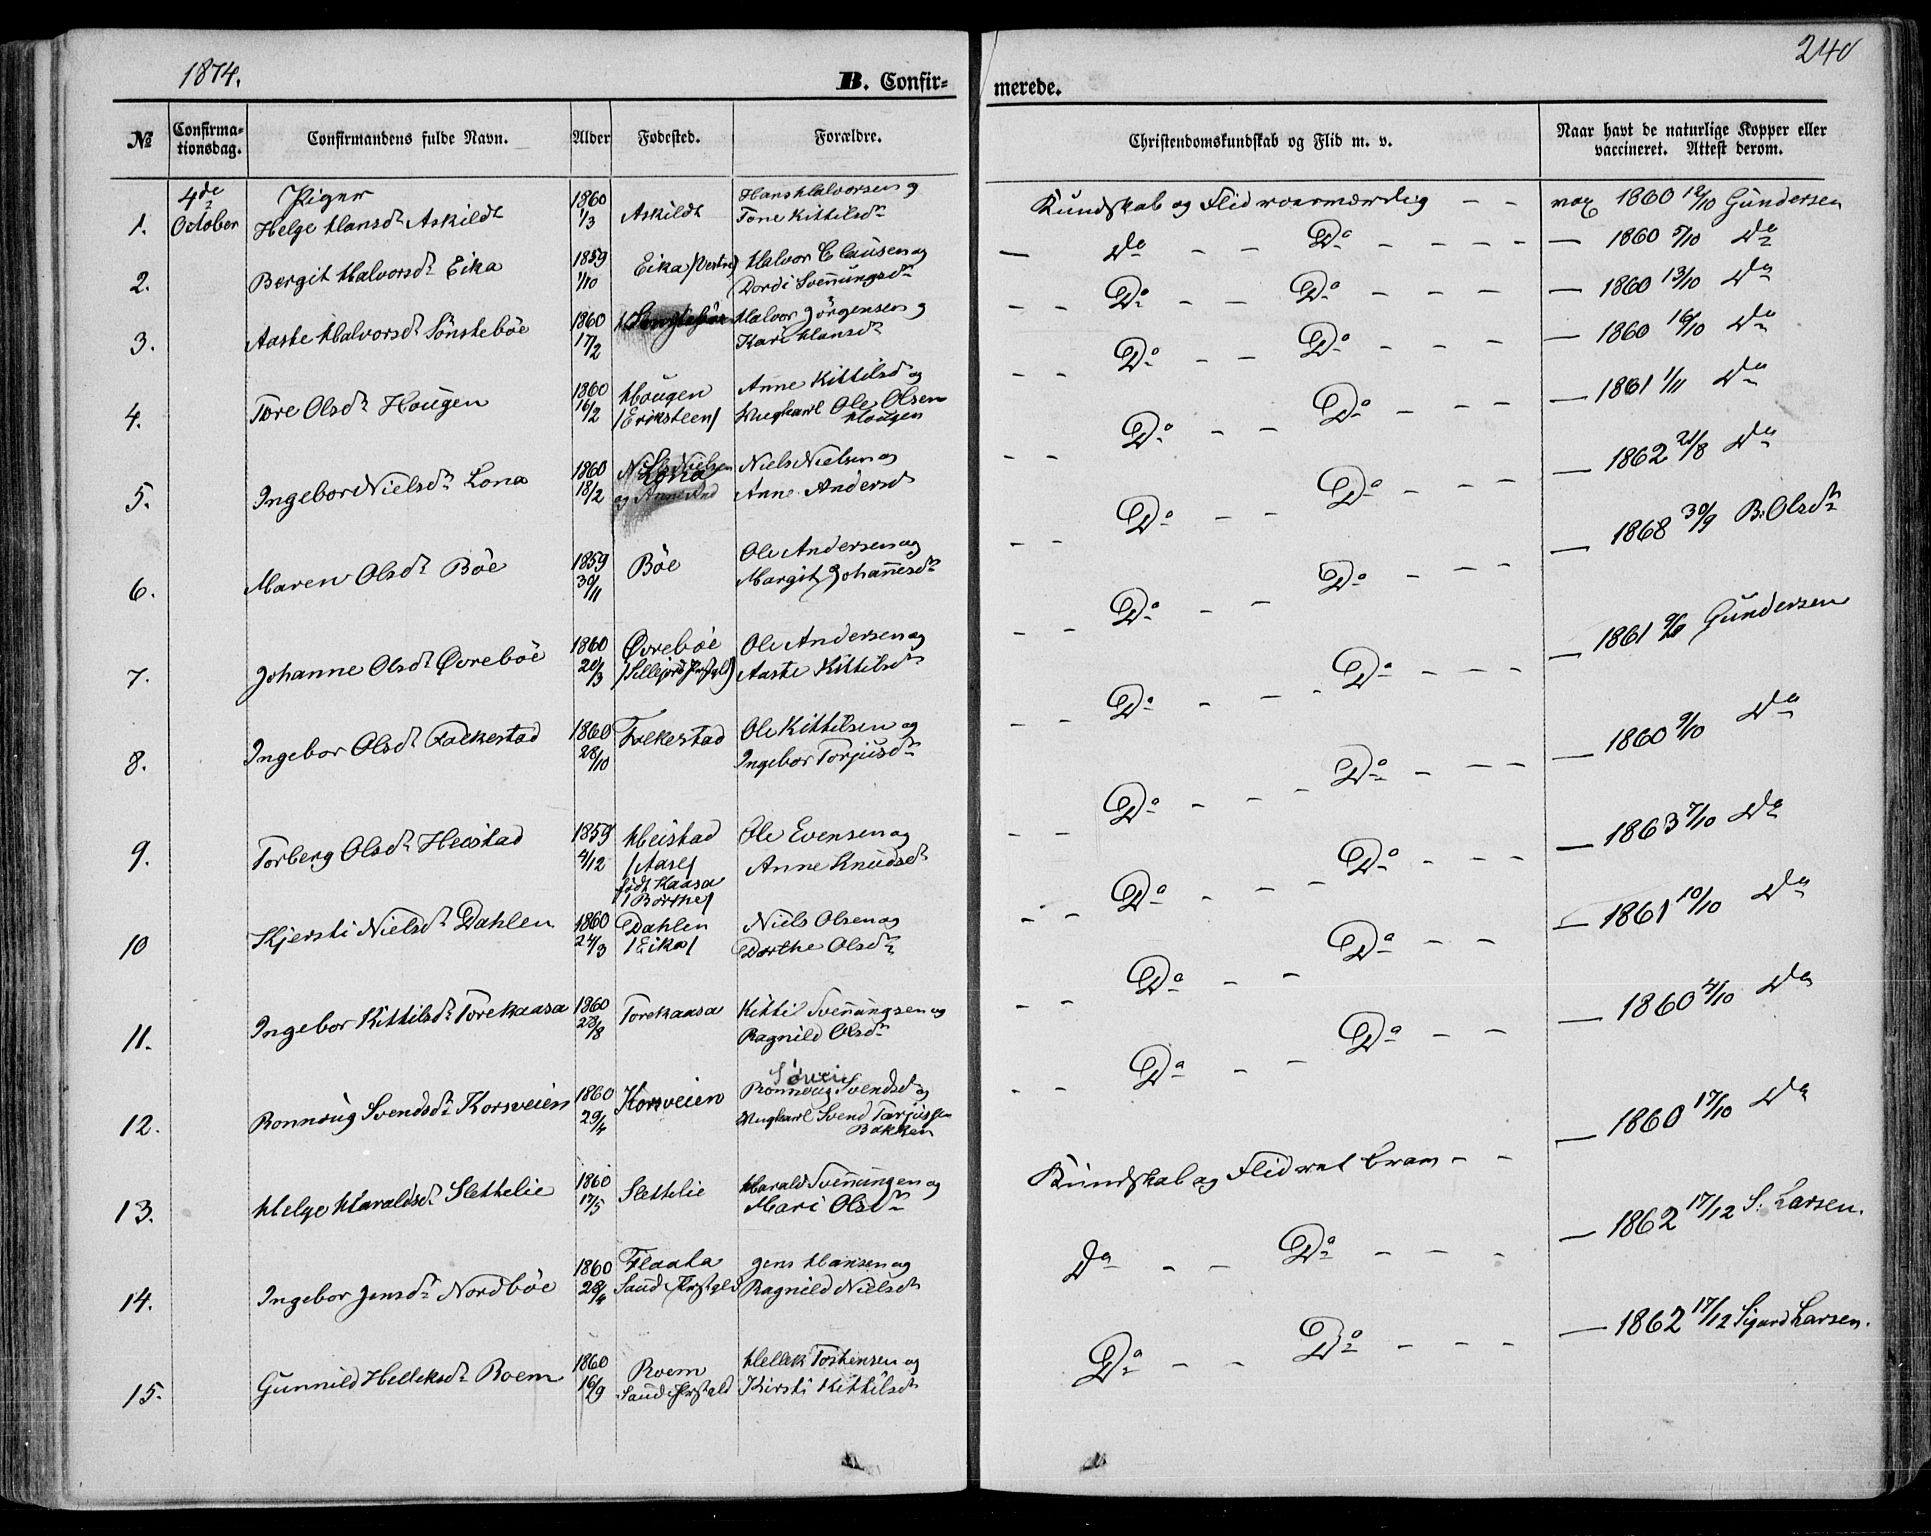 1874.
240
B. Confir-
merede.
№
Confirma-
tionsdag.
Confirmandens fulde Navn.
Alder
Fødested.
Forældre.
Christendomskundskab og Flid m. v.
Naar havt de naturlige Kopper eller
vaccineret. Attest derom.
4de October
Piger
1. Helge Hansdr Askildt 1860 1/3 Askildt Hans Halvorsen og Tone Kittilsdr Kundskab og Flid roesværdig - - vac 1860 12/10 Gundersen
2. Bergit Halvorsdr Eika 1859 1/10 Eika (Vestre) Halvor Clausen og Dordi Svenungsdr — Do - - Do - - - - — 1860 5/10 Do
3. Aaste Halvorsdr Sönsteböe 1860 17/2 Halvor Jörgensen og Kari Hansdr - - Do - - Do - - - - — 1860 13/10 Do
4. Tore Olsdr Hougen 1860 16/2 Hougen /Eriksteen/ Anne Kittilsd og Ungkarl Ole Olsen Hougen - - Do - - Do - - - — 1860 16/10 Do
5. Ingebor Nielsdr Lona 1860 18/2 Lona Niels Nielsen og Anne Andersd - - Do - - Do - - - — 1861 1/11 Do
6. Maren Olsdr Böe 1859 30/11 Böe Ole Andersen og Margit Johannesdr - - Do - - Do - - - — 1862 21/8 Do
7. Johanne Olsdr Øvreböe 1860 20/3 Øvreböe /Sellejord Præstgld) Ole Andersen og Aaste Kittilsdr - - Do - - Do - - - — 1868 30/9 B. Olsdr
8. Ingebor Olsdr Folkestad 1860 28/10 Folkestad Ole Kittilsen og Ingebor Torjusdr - - Do - - - Do - - - — 1861 Gundersen
9. Torberg Olsdr Heistad 1859 4/12 Heistad /Aase/ født Kaasa /Borthe/ Ole Evensen og Anne Knudsdr - - Do - - - Do - - - — 1860 9/10 Do
10 Kjersti Nielsdr Dahlen 1860 24/3 Dahlen /Eika/ Niels Olsen og Dorthe Olsdr - - Do - - - Do - - - — 1863 7/10 Do
11. Ingebor Kittilsdr Torekaasa 1860 28/8 Torekaasa Kittil Svenungsen og Ragnild Olsdr - - Do - - Do - - — 1861 10/10 Do
12. Ronnoug Svendsdr Korsveien 1860 29/4 Korsveien Ronnoug Svendsd og Ungkarl Svend Tarjussen Bakken - - Do - - Do - - — 1860 4/10 Do
13. Helge Haraldsdr Slettelie 1860 17/5 Slettelie Harald Svenungen og Mari Olsdr Kundskab og Flid ret brav - - — 1860 17/10 Do
14. Ingebor Jensdr Nordböe 1860 28/4 Flaata Saude Præstgld Jens Hansen og Ragnild Nielsdr Do - - Do - - - — 1862 17/12 S. Larsen.
15. Gunnild Helleksdr Roem 1860 16/9 Roem Saude Præstgld Hellek Tostensen og Kirsti Kittilsdr Do - - Do - - - — 1862 17/12 Sigurd Larsen.